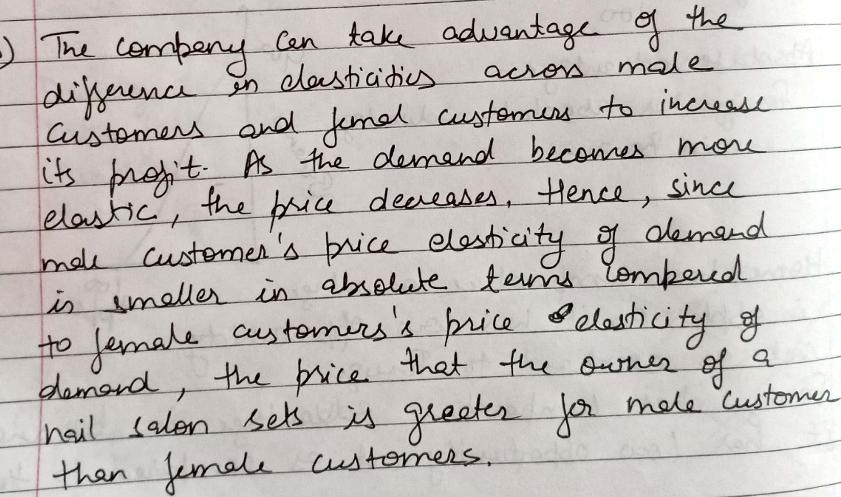 ) The company can take advantage of the
difference in elasticities across male
customers and femal customers to increase
its profit. As the demand becomes more
elastic, the price decreases. Hence, since
male customer's price elasticity of demand
is smaller in absolute terms compared
to female customers's price elasticity of
demand, the price that the owner of a
nail salon sets is greater for male customer
than female customers.